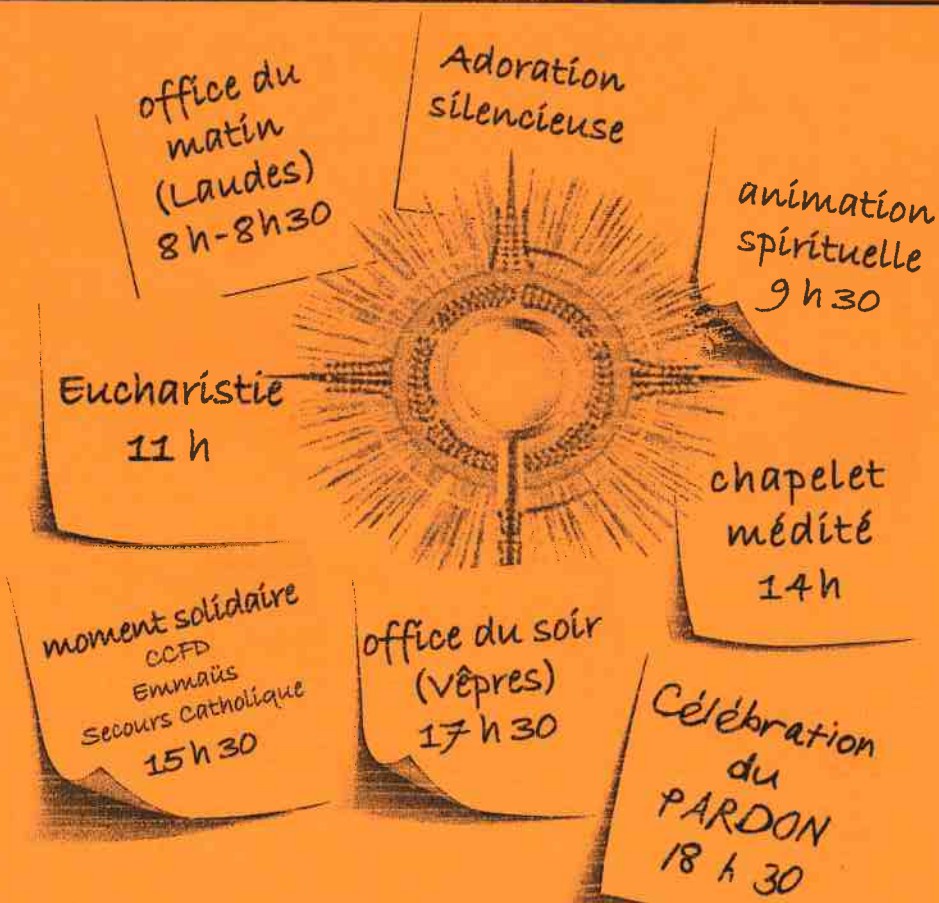 office du
matin
(Laudes)
8h-8h30
Adoration
silencieuse
animation
spirituelle
9h30
Eucharistie
11 h
chapelet
médité
14h
moment solidaire
CCFD
Emmaüs
Secours Catholique
15h30
office du soir
(vêpres)
17h30
Célébration
du
PARDON
18 h 30